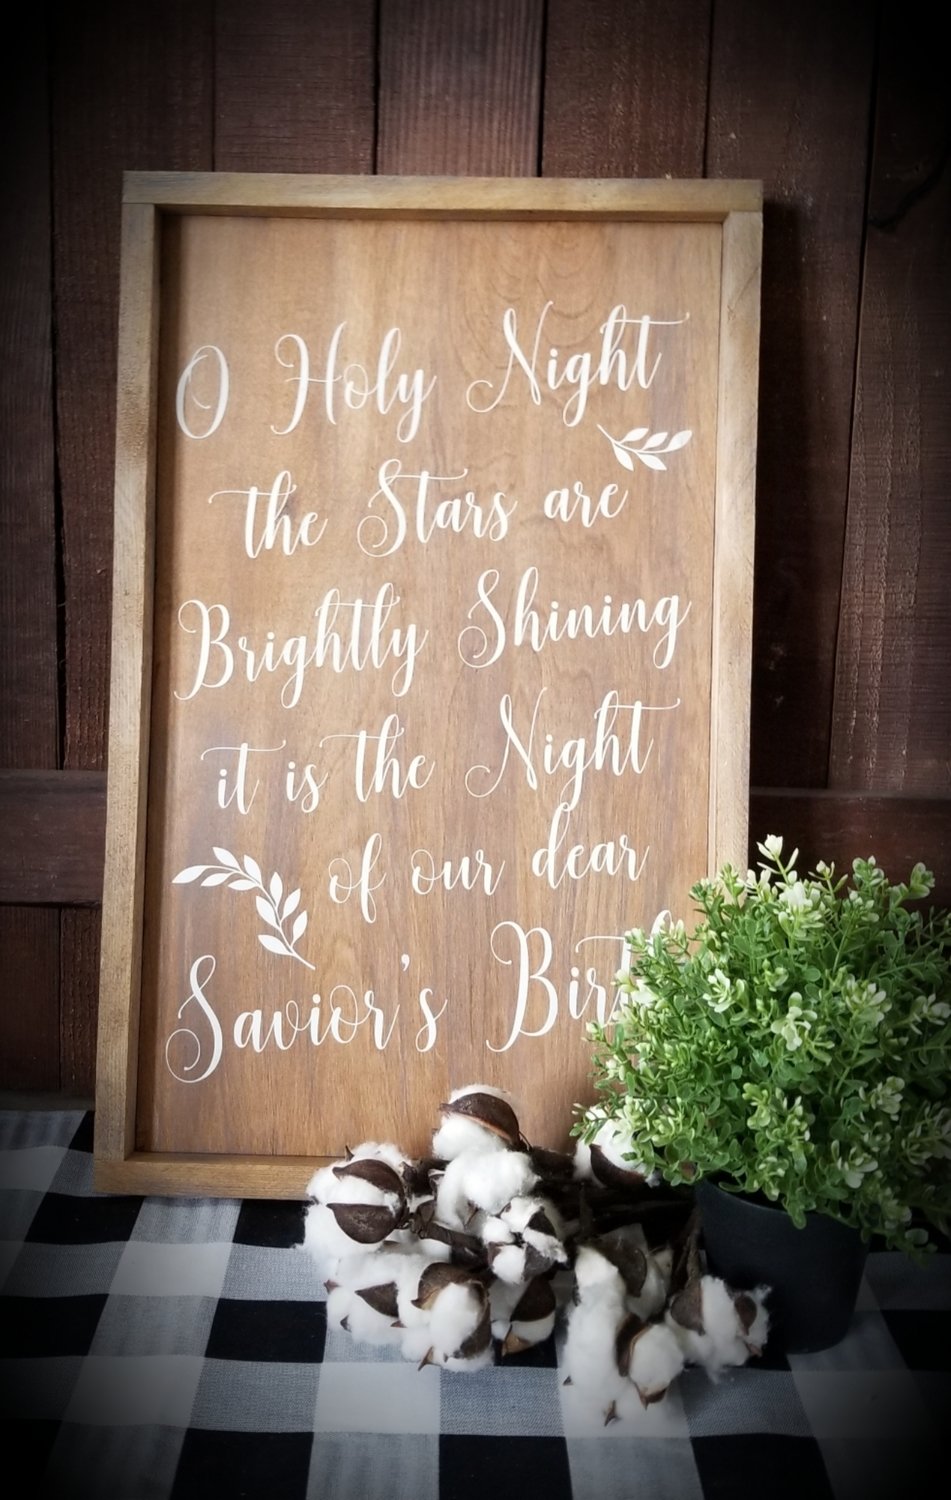 O Holy Night
the Stars are
Brightly Shining
it is the Night
of our dear
Savior's Birth